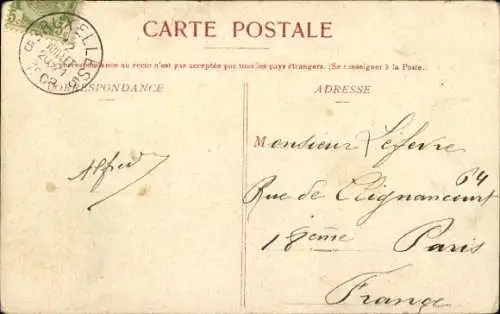 CARTE POSTALE
Correspondance au recto n'est pas acceptée par tous les pays étrangers. (Se renseigner à la Poste.
CORRESPONDANCE
ADRESSE
Monsieur Lefevre
64
Rue de Clignancourt
18eme Paris
France
Alfred
BRUXELLES
JUIL